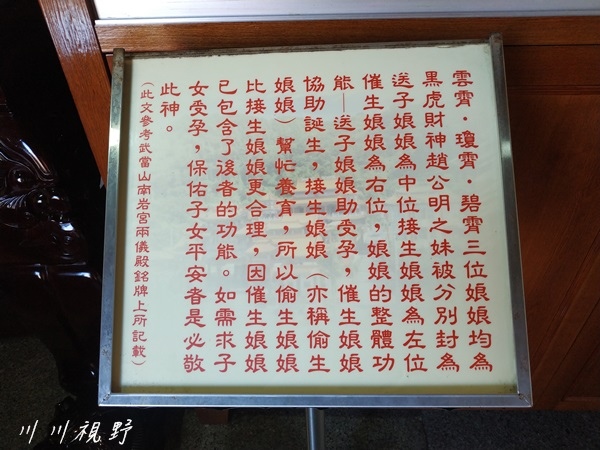 雲霄·瓊霄·碧霄三位娘娘均為
黑虎財神趙公明之妹被分別封為
送子娘娘為中位接生娘娘為左位
催生娘娘為右位，娘娘的整體功
能—送子娘娘助受孕，催生娘娘
協助誕生，接生娘娘（亦稱偷生
娘娘）幫忙養育，所以偷生娘娘
比接生娘娘更合理，因催生娘娘
已包含了後者的功能。如需求子
女受孕，保佑子女平安者是必敬
此神。
（此文參考武當山南岩宮兩儀殿銘牌上所記載）
川川視野